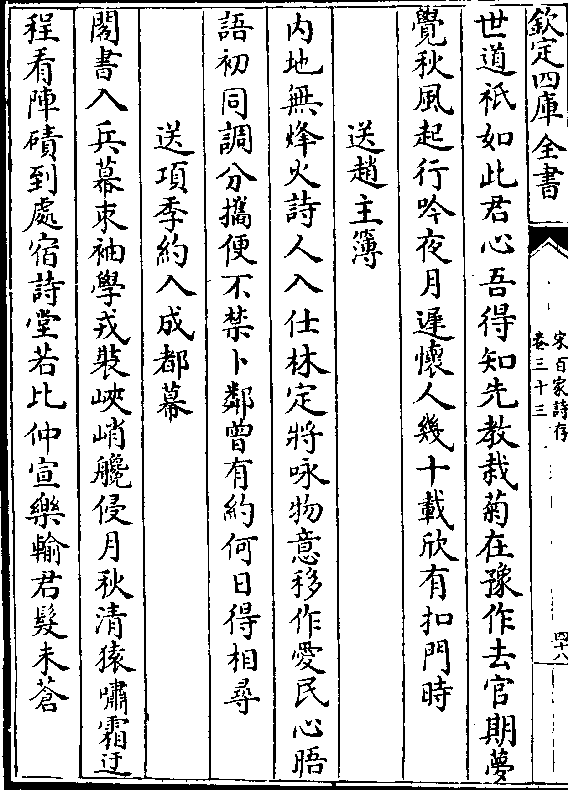 欽定四庫全書
宋百家詩存
卷三十三
四十八
世道祇如此君心吾得知先教栽菊在豫作去官期夢
覺秋風起行吟夜月遲懷人幾十載欣有扣門時
送趙主簿
内地無烽火詩人入仕林定將咏物意移作愛民心晤
語初同調分攜便不禁卜鄰曽有約何日得相尋
送項季約入成都幕
閫書入兵幕束袖學戎裝峽峭艬侵月秋清猿嘯霜迂
程看陣磧到處宿詩堂若比仲宣樂輸君髮未蒼